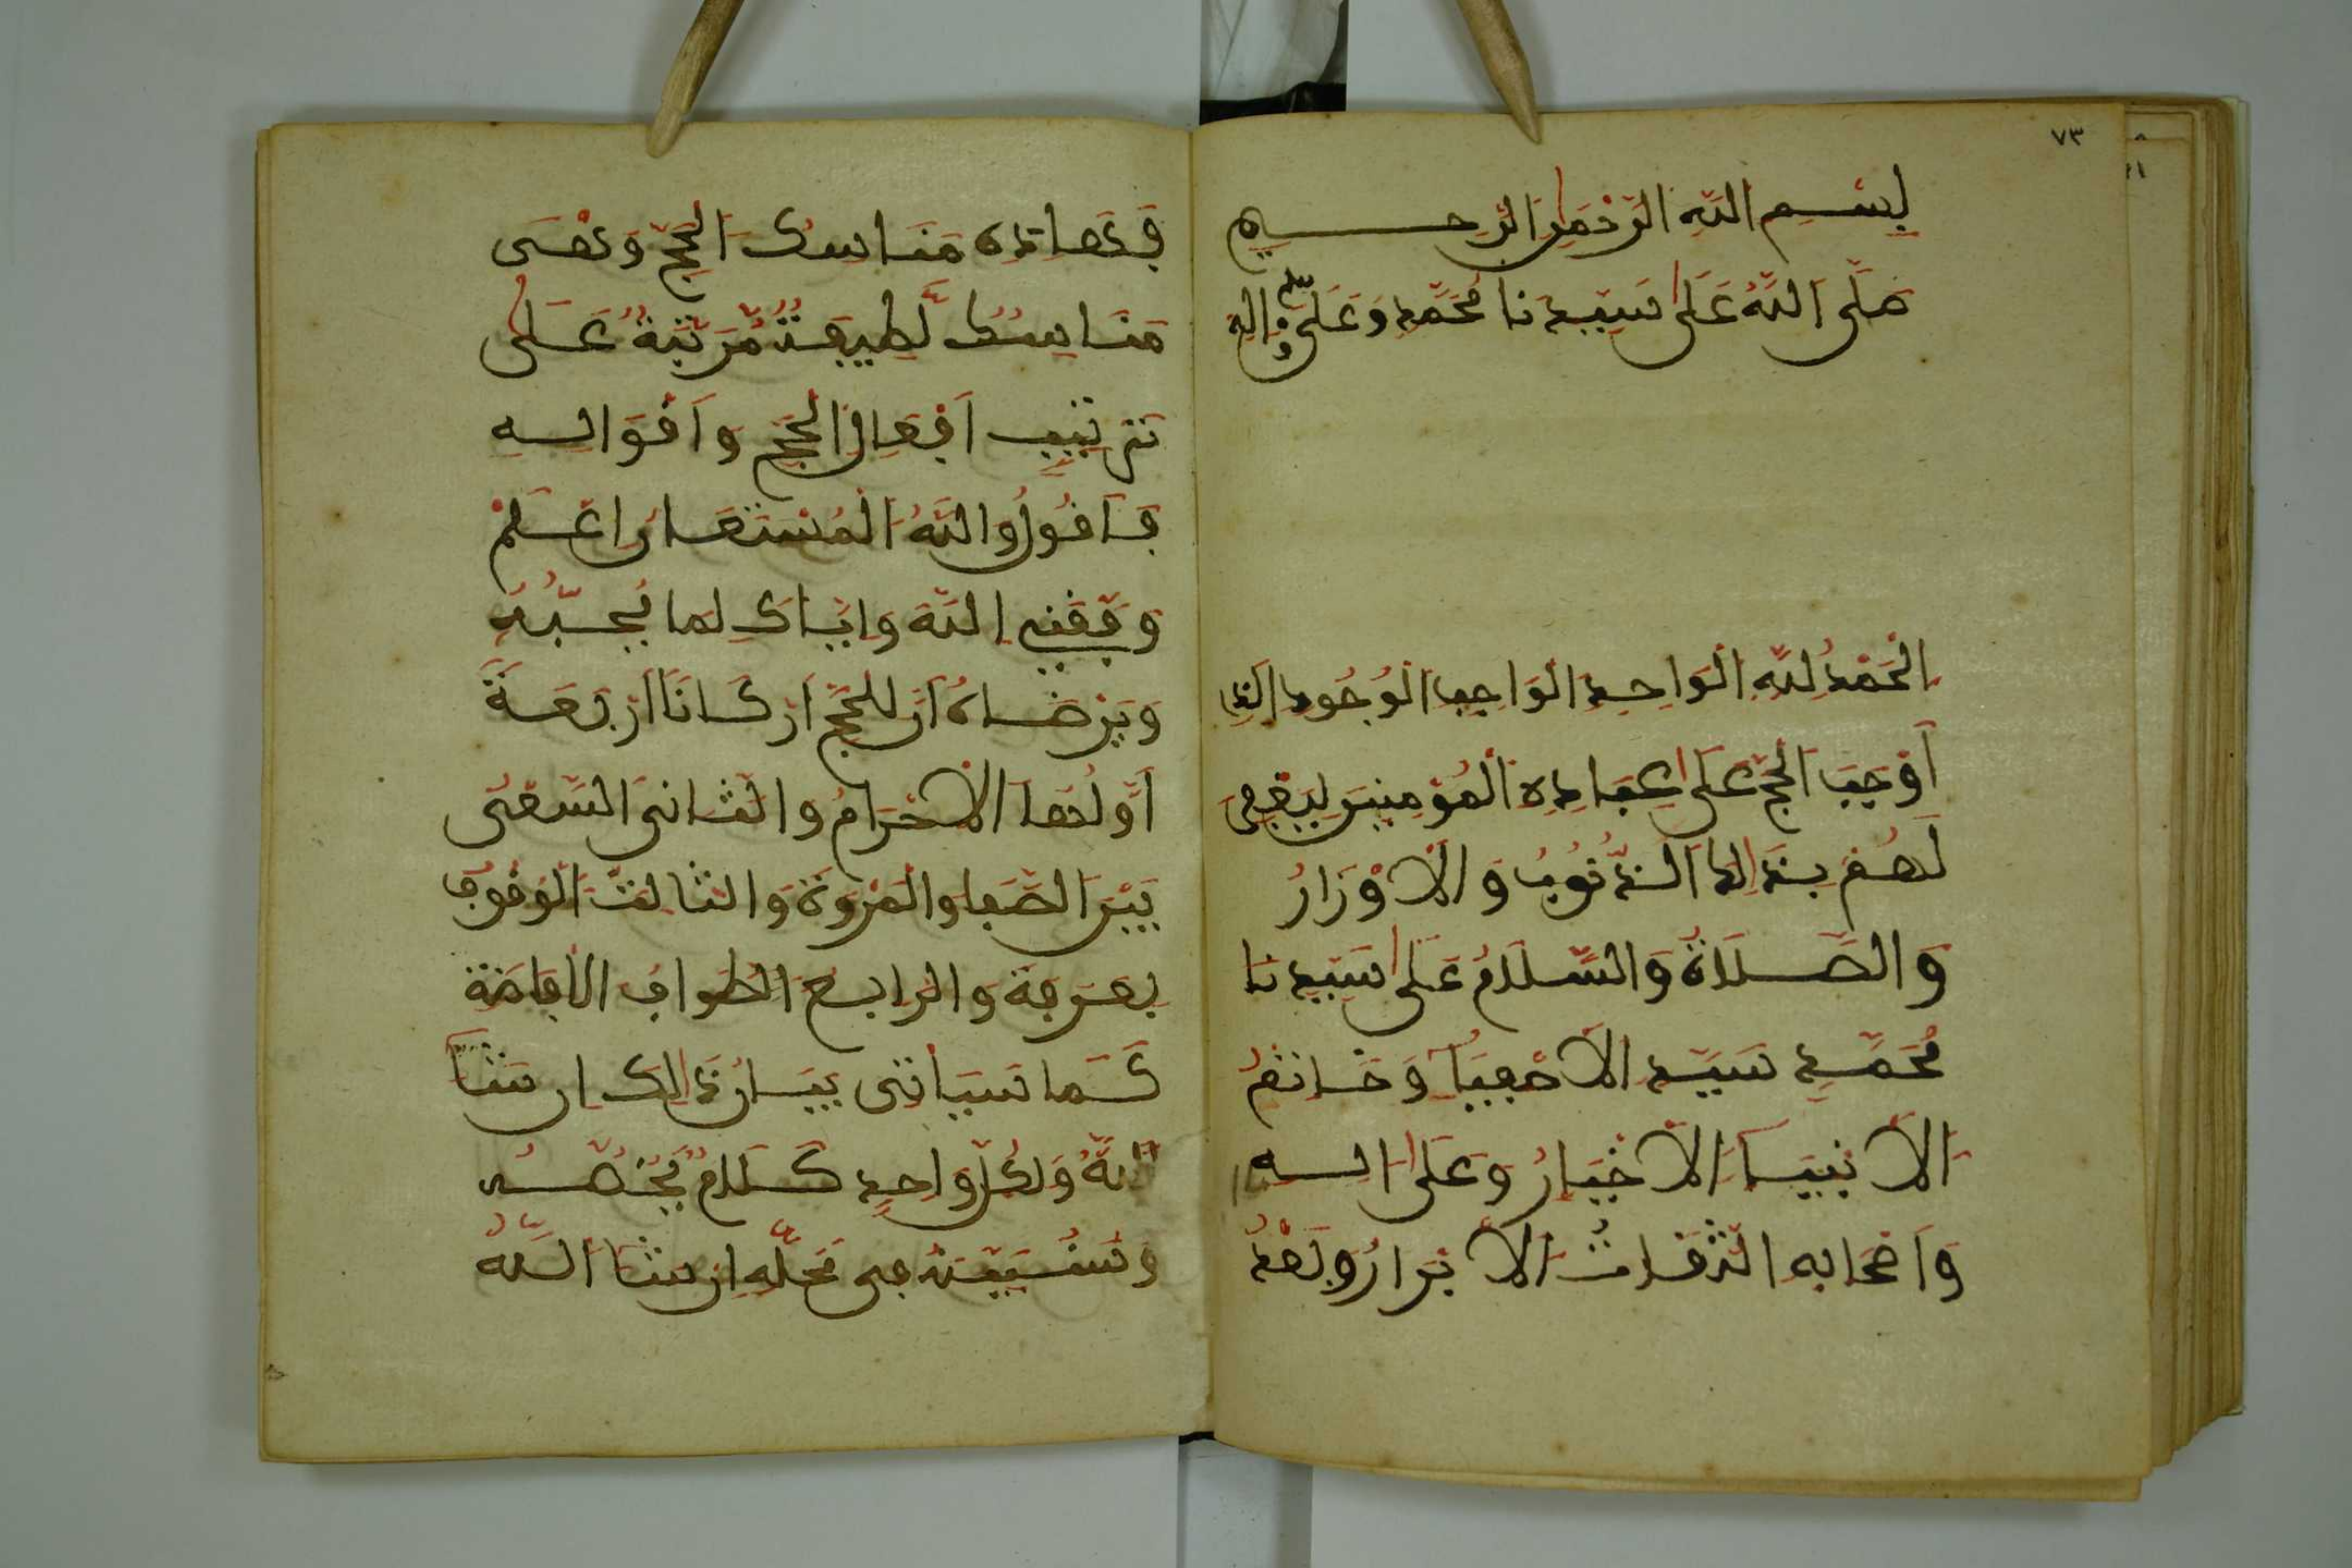 ٧٣
بسم الله الرحمن الرحيم
صلى الله على سيدنا محمد وعلى اله
الحمد لله الواحد الواجب الوجود الذي
أوجب الحج على عباده المؤمنين ليغفر
لهم بذلك الذنوب والأوزار
والصلاة والسلام على سيدنا
محمد سيد الأصفيا وخاتم
الأنبيا الأخيار وعلى اله
وأصحابه الثقات الأبرار وبعد
فهاذه مناسك الحج وهى
مناسك لطيفة مرتبة على
ترتيب أفعال الحج وأقواله
فأقول والله المستعان اعلم
وفقني الله واياك لما يحبه
ويرضاه أن للحج أركانا أربعة
أولها الاحرام والثاني السعي
بين الصفا والمروة والثالث الوقوف
بعرفة والرابع الطواف الافاضة
كما سيأتي بيان ذلك ان شا
الله ولكل واحد كلام يخصه
وسنبينه في محله ان شا الله